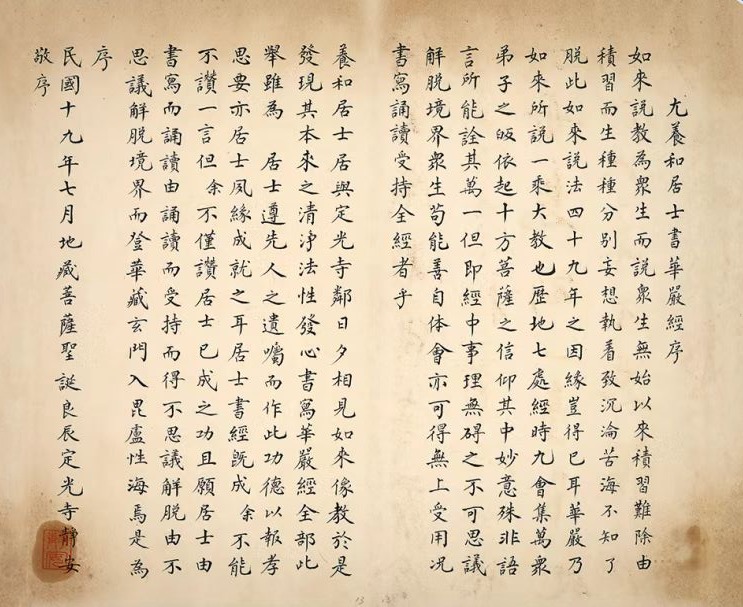 尤養和居士書華嚴經序
如來說教為衆生而說衆生無始以來積習難除由
積習而生種種分別妄想執着致沉淪苦海不知了
脱此如來說法四十九年之因緣豈得已耳華嚴乃
如來所說一乘大教也歷地七處經時九會集萬衆
弟子之皈依起十方菩薩之信仰其中妙意殊非語
言所能詮其萬一但即經中事理無碍之不可思議
解脱境界衆生苟能善自体會亦可得無上受用況
書寫誦讀受持全經者乎
養和居士居與定光寺鄰日夕相見如來像教於是
發現其本來之清净法性發心書寫華嚴經全部此
舉雖為 居士遵先人之遺囑而作此功德以報孝
思要亦居士夙緣成就之耳居士書經既成 余不能
不讚一言但 余不僅讚居士已成之功且願居士由
書寫而誦讀由誦讀而受持而得不思議解脱由不
思議解脱境界而登華藏玄門入毘盧性海焉是為
序
民國十九年七月地藏菩薩聖誕良辰定光寺靜安
敬序